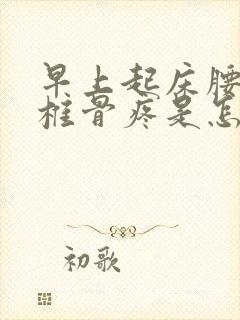 早上起床腰
椎骨疼是怎
初歌